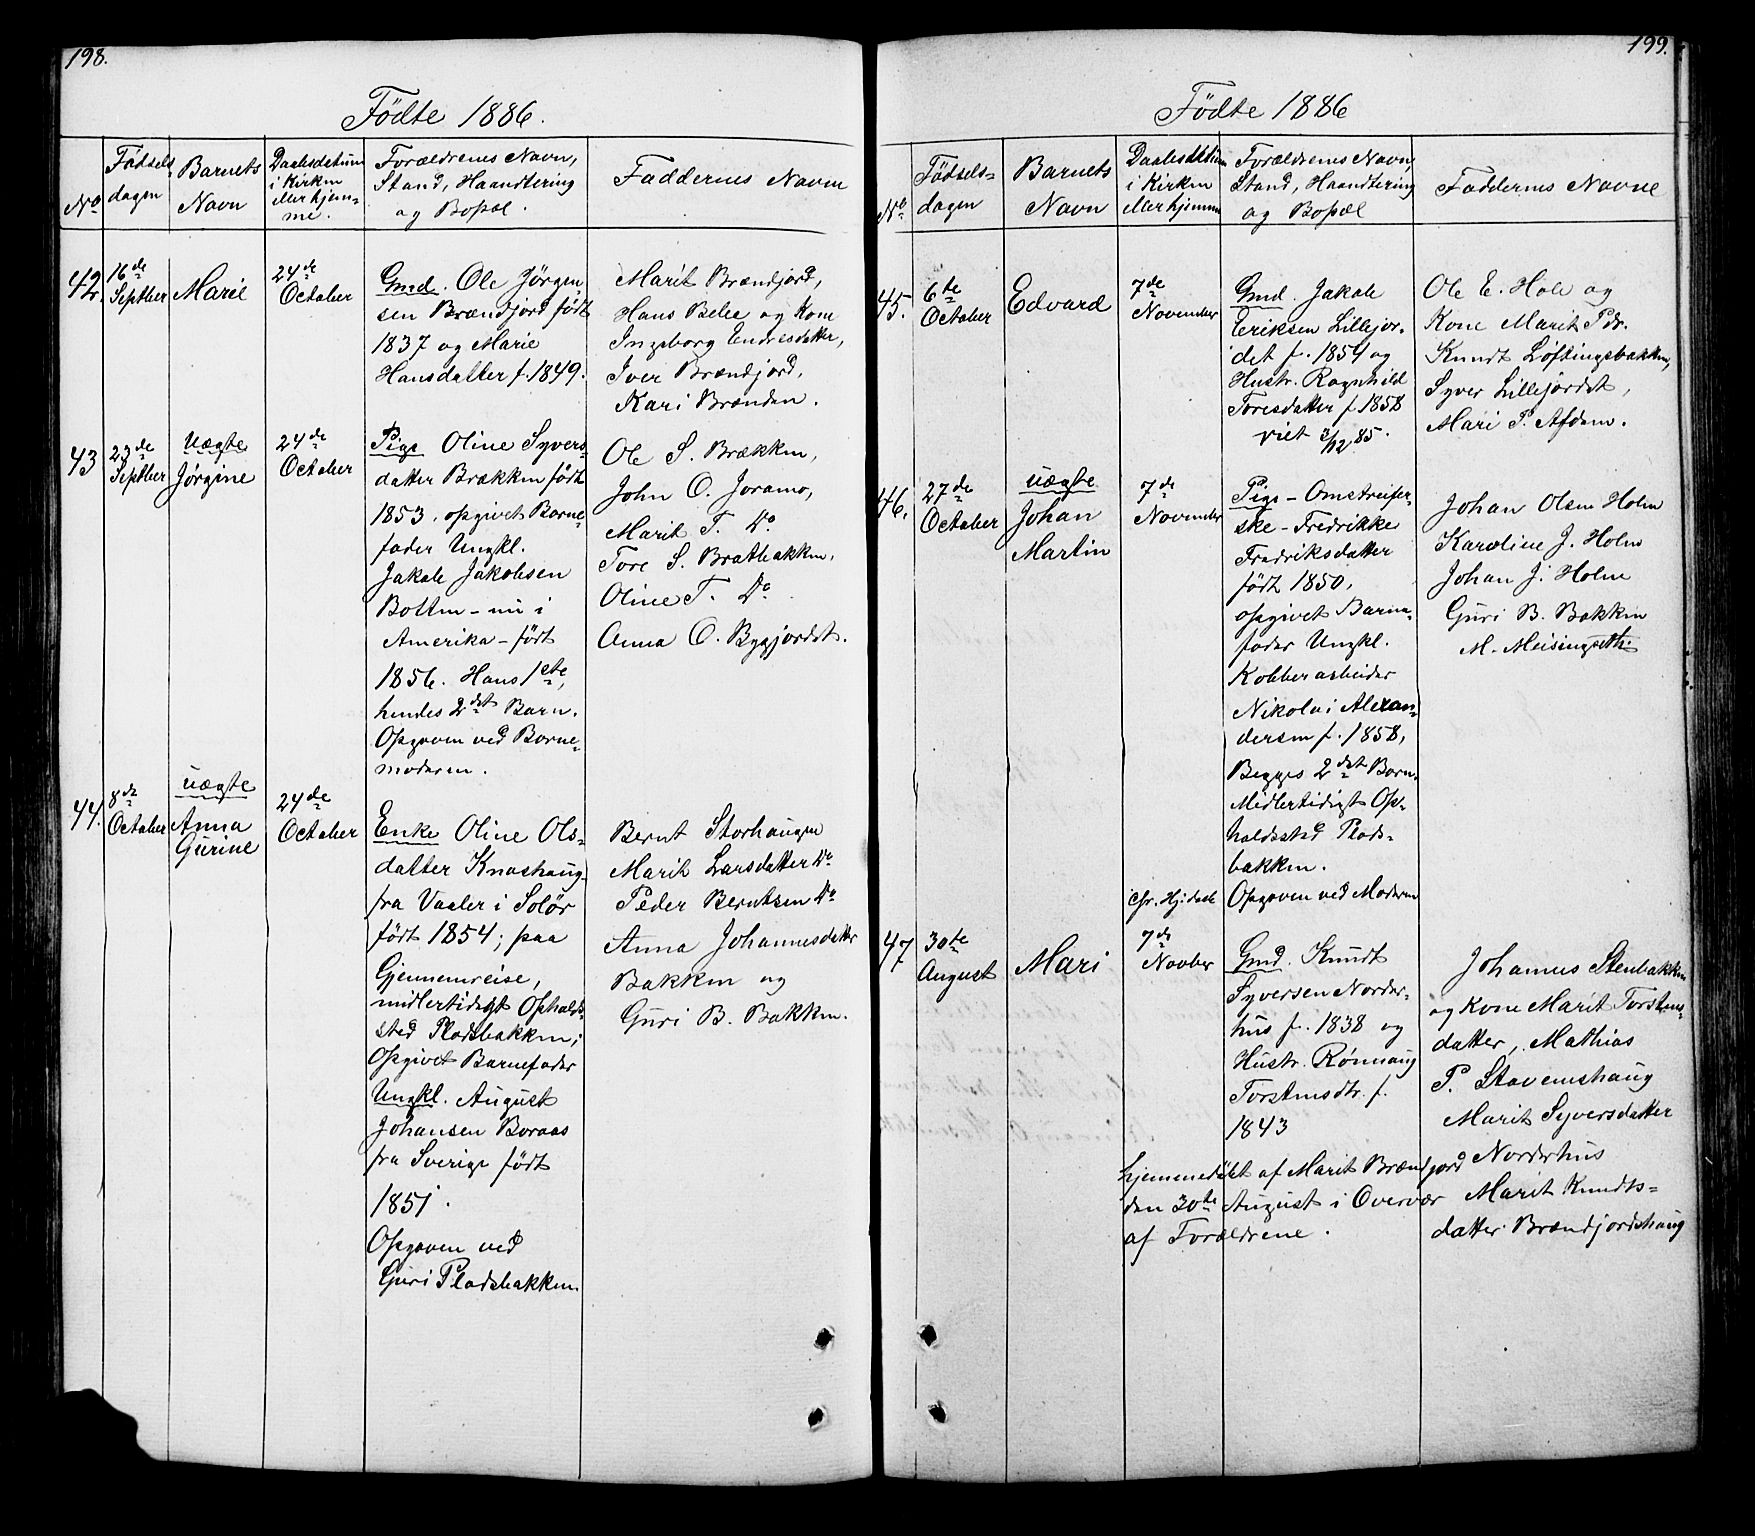 198.
Födte 1886.
No
Födsels
dagen
Barnets
Navn
Daabsdatum
i Kirken
eller hjem-
me.
Forældrenes Navn,
Stand, Haandtering
og Bopæl.
Faddernes Navne
42.
16de
Septber
Marie
24de
October
Gmd. Ole Jørgen-
sen Brændjord født
1837 og Marie
Hansdatter f. 1849.
Marit Brændjord,
Hans Belee og Kone
Ingeborg Endresdatter,
Iver Brændjord,
Kari Brænden.
43
23de
Septber
Uægte
Jørgine
24de
October
Pige Oline Syvers-
datter Brækken født
1853, opgivet Barne-
fader Ungkl.
Jakob Jakobsen
Botten - nu i
Amerika - født
1856. Hans 1ste,
hendes 2det Barn.
Opgaven ved Barne-
moderen.
Ole S. Brækken,
John O. Joramo,
Marit T. Do
Tore S. Bratbakken,
Oline T. Do
Anna O. Byggjordet.
44.
8de
October
uægte
Anna
Gurine
24de
October
Enke Oline Ols-
datter Knashaug
fra Vaaler i Solör
født 1854; paa
Gjennemreise,
midlertidigt Ophold-
sted Pladsbakken;
Opgivet Barnefader
Ungkl. August
Johansen Boraas
fra Sverige født
1851.
Opgaven ved
Guri Pladsbakken.
Bernt Storhaugen
Marit Larsdatter Do
Peder Berntsen Do
Anna Johannesdatter
Bakken og
Guri B. Bakken.
199.
Födte 1886
No
Födsels-
dagen
Barnets
Navn
Daabsdatum
i Kirken
eller hjemme
Forældrenes Navn,
Stand, Haandtering
og Bopæl
Faddernes Navne
45.
6te
October
Edvard
7de
November
Gmd. Jakob
Eriksen Lillejor-
det f. 1854 og
Hustr. Ragnhild
Toresdatter f. 1858
viet 3/12 85.
Ole E. Hole og
Kone Marit Pdr.
Knudt Løftingsbakken,
Syver Lillejordet,
Mari P. Afdem.
46.
27de
October
uægte
Johan
Martin
7de
November
Pige - Omstreifer-
ske - Fredrikke
Fredriksdatter
født 1850,
opgivet Barne-
fader Ungkl.
Kobberarbeider
Nikolai Alexan-
dersen f. 1858,
Begges 2det Barn.
Midlertidigt Op-
holdssted Plads-
bakken.
Opgaven ved Moderen
Johan Olsen Holm
Karoline J. Holm
Johan J. Holm
Guri B. Bakken
M. Meisingseth
47
30te
August
Mari
Chr. Hj: døbt
7de
Novber
Gmd. Knudt
Syversen Norder-
hus f. 1838 og
Hustr. Rønnaug
Torstensdtr. f.
1843
Hjemmedøbt af Marit Brændjord
den 30te August i Overvær
af Forældrene.
Johannes Stenbakken
og Kone Marit Torstens-
datter, Mathias
P. Stavemshaug
Marit Syversdatter
Norderhus
Marit Knudts-
datter Brændjordshaug